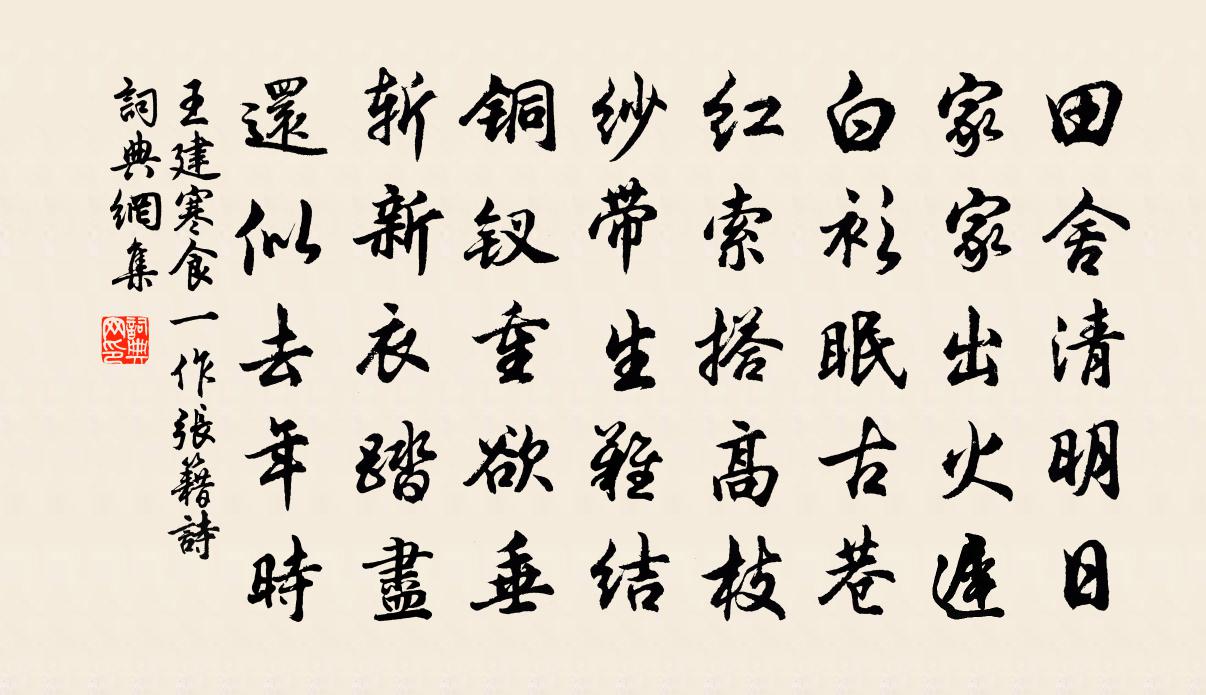 田舍清明日
家家出火遲
白衫眠古巷
红索搭高枝
纱带生難结
銅钗重欲垂
斩新衣踏盡
還似去年時
王建寒食一作張籍詩
詞典網集
詞典网印